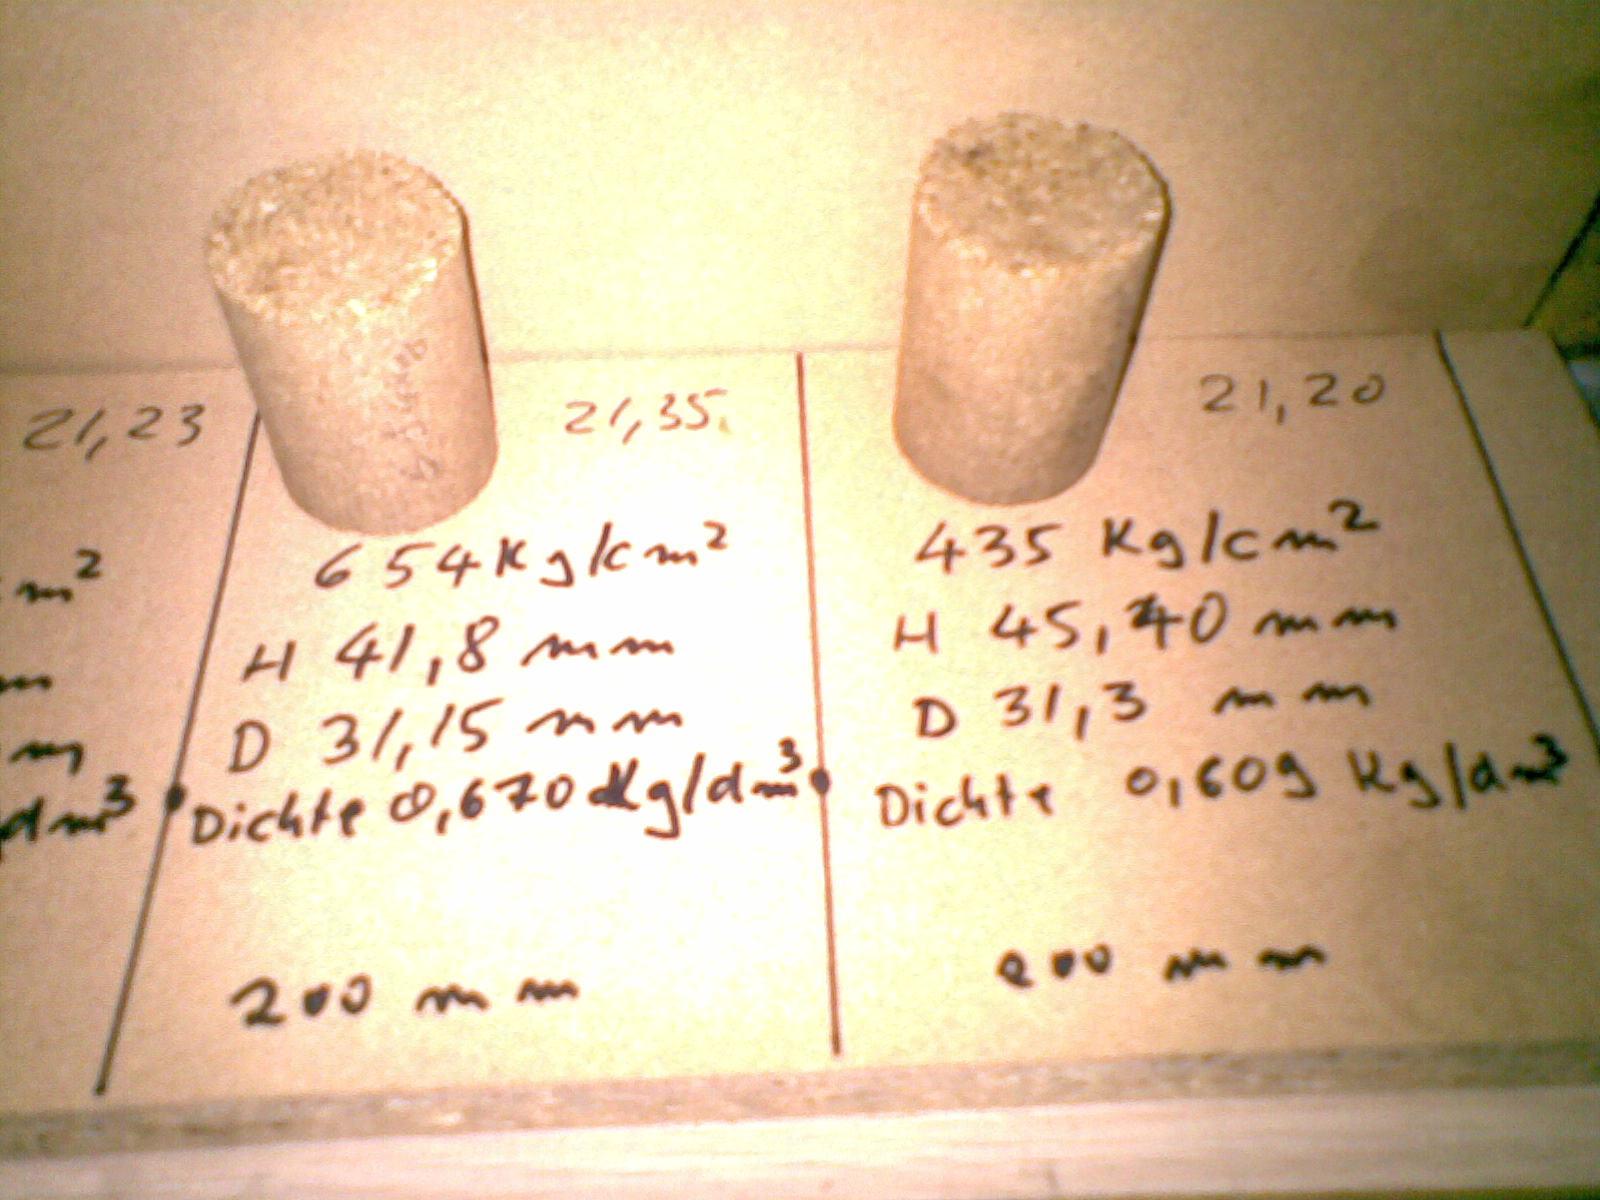 21,23
m²
m
m
dm³
21,35
654 Kg/cm²
H 41,8 mm
D 31,15 mm
Dichte 0,670 Kg/dm³
200 mm
21,20
435 Kg/cm²
H 45,40 mm
D 31,3 mm
Dichte 0,609 Kg/dm³
200 mm